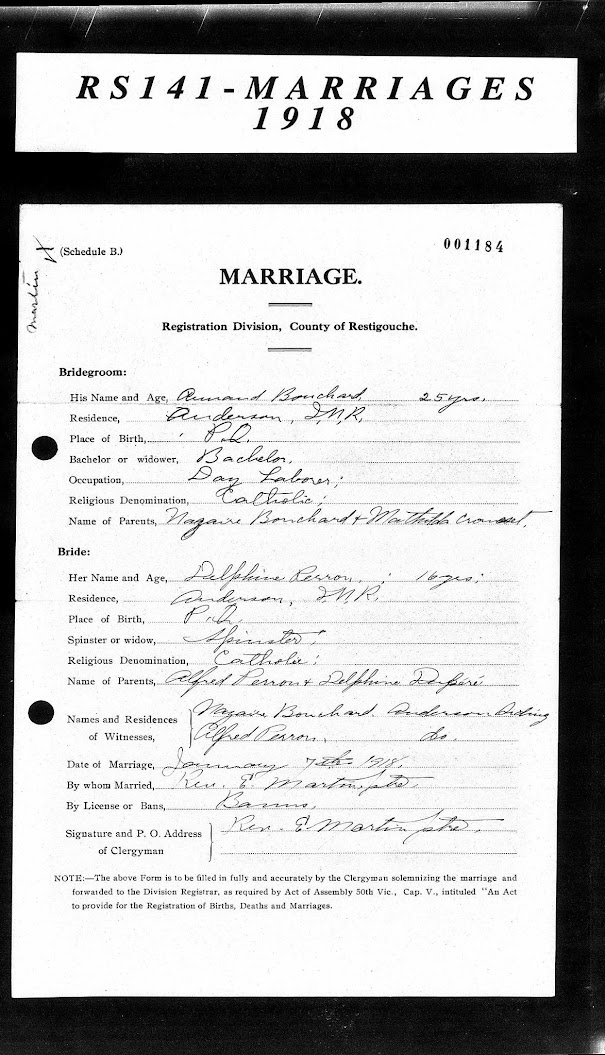 RS141-MARRIAGES
1918
Martin
(Schedule B.)
001184
MARRIAGE.
Registration Division, County of Restigouche.
Bridegroom:
His Name and Age, Armand Bouchard 25 yrs.
Residence, Anderson, I.N.R.
Place of Birth, P.Q.
Bachelor or widower, Bachelor,
Occupation, Day Laborer;
Religious Denomination, Catholic;
Name of Parents, Nazaire Bouchard & Mathilda
Bride:
Her Name and Age, Delphine Perron, 16 yrs;
Residence, Anderson, I.N.R.
Place of Birth, P.Q.
Spinster or widow, Spinster;
Religious Denomination, Catholic;
Name of Parents, Alfred Perron & Delphine
Names and Residences Nazaire Bouchard. Anderson Siding
of Witnesses, Alfred Perron, do.
Date of Marriage, January 7th 1918.
By whom Married, Rev. E. Martin, ptre.
By License or Bans, Banns,
Signature and P. O. Address Rev. E. Martin ptre.
of Clergyman
NOTE:—The above Form is to be filled in fully and accurately by the Clergyman solemnizing the marriage and
forwarded to the Division Registrar, as required by Act of Assembly 50th Vic., Cap. V., intituled "An Act
to provide for the Registration of Births, Deaths and Marriages.